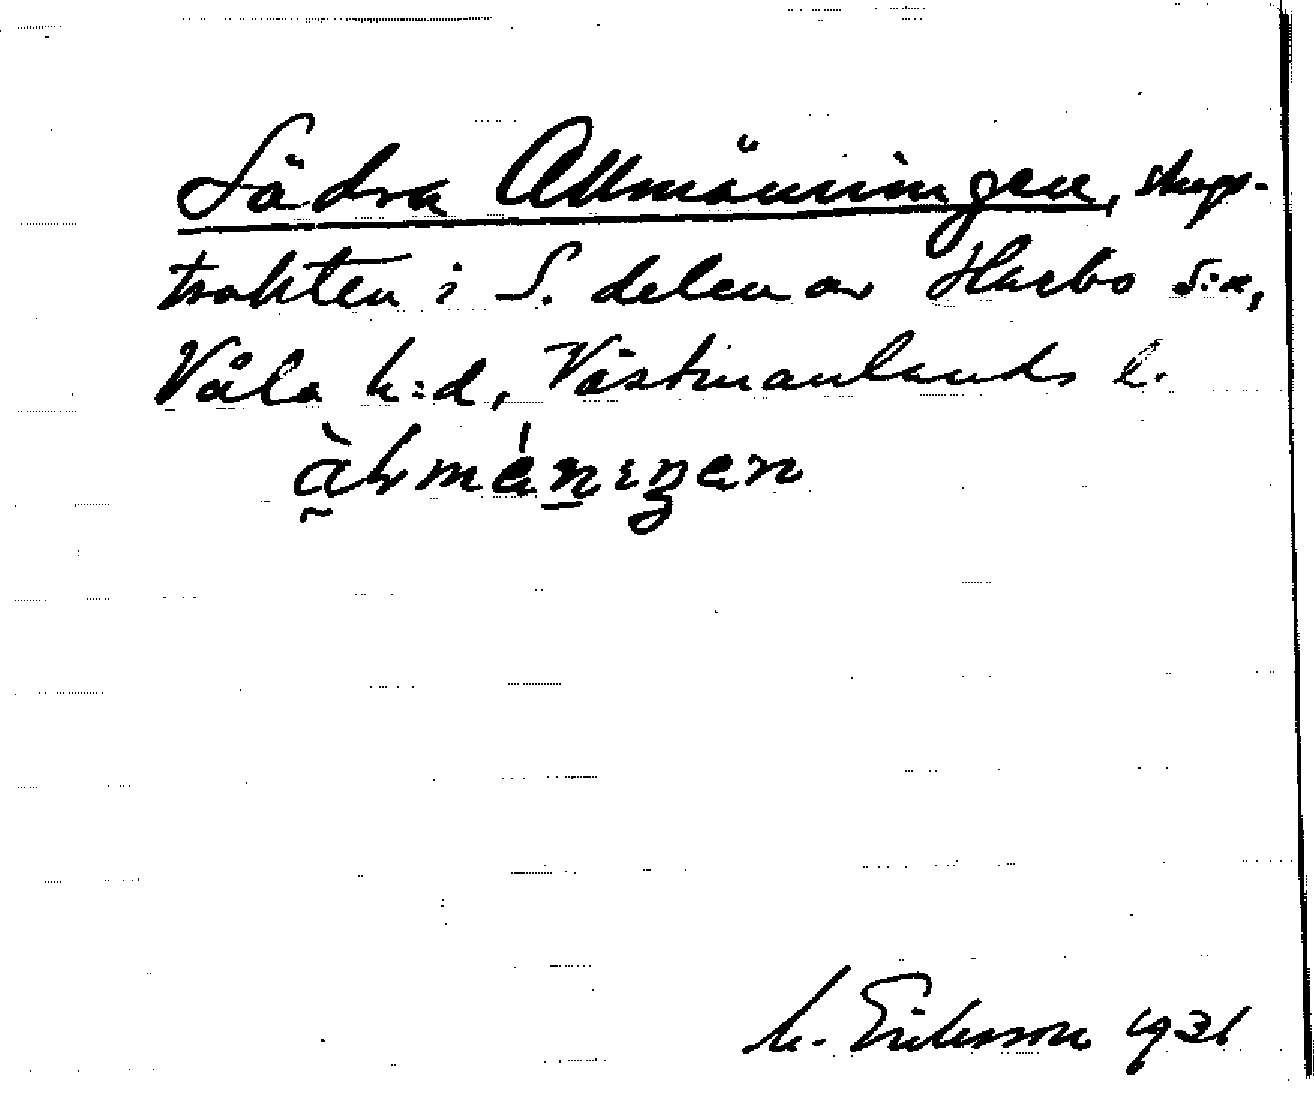 Södra Allmänningen, skogs-
trakten i S. delen av Harbo s:n,
Våla h:d, Västmanlands l.
M. Eriksson 1931